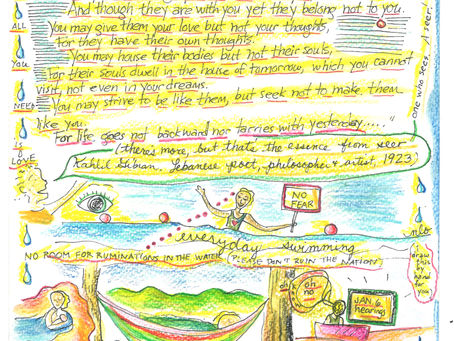 And though they are with you yet they belong not to you.
You may give them your love but not your thoughts,
for they have their own thoughts.
You may house their bodies but not their souls,
For their souls dwell in the house of tomorrow, which you cannot
visit, not even in your dreams.
You may strive to be like them, but seek not to make them
like you.
For life goes not backward nor tarries with yesterday....."
(there's more, but that's the essence from seer
Kahlil Gibran. Lebanese poet, philosopher & artist, 1923)
ALL
YOU
NEED
IS
LOVE
one who sees. A seer.
NO
FEAR
everyday swimming
NO ROOM FOR RUMINATIONS IN THE WATER (PLEASE DON'T RUIN THE NATION)
I drew
this
by
hand
for
you)
oh
no
oh
JAN. 6
hearings